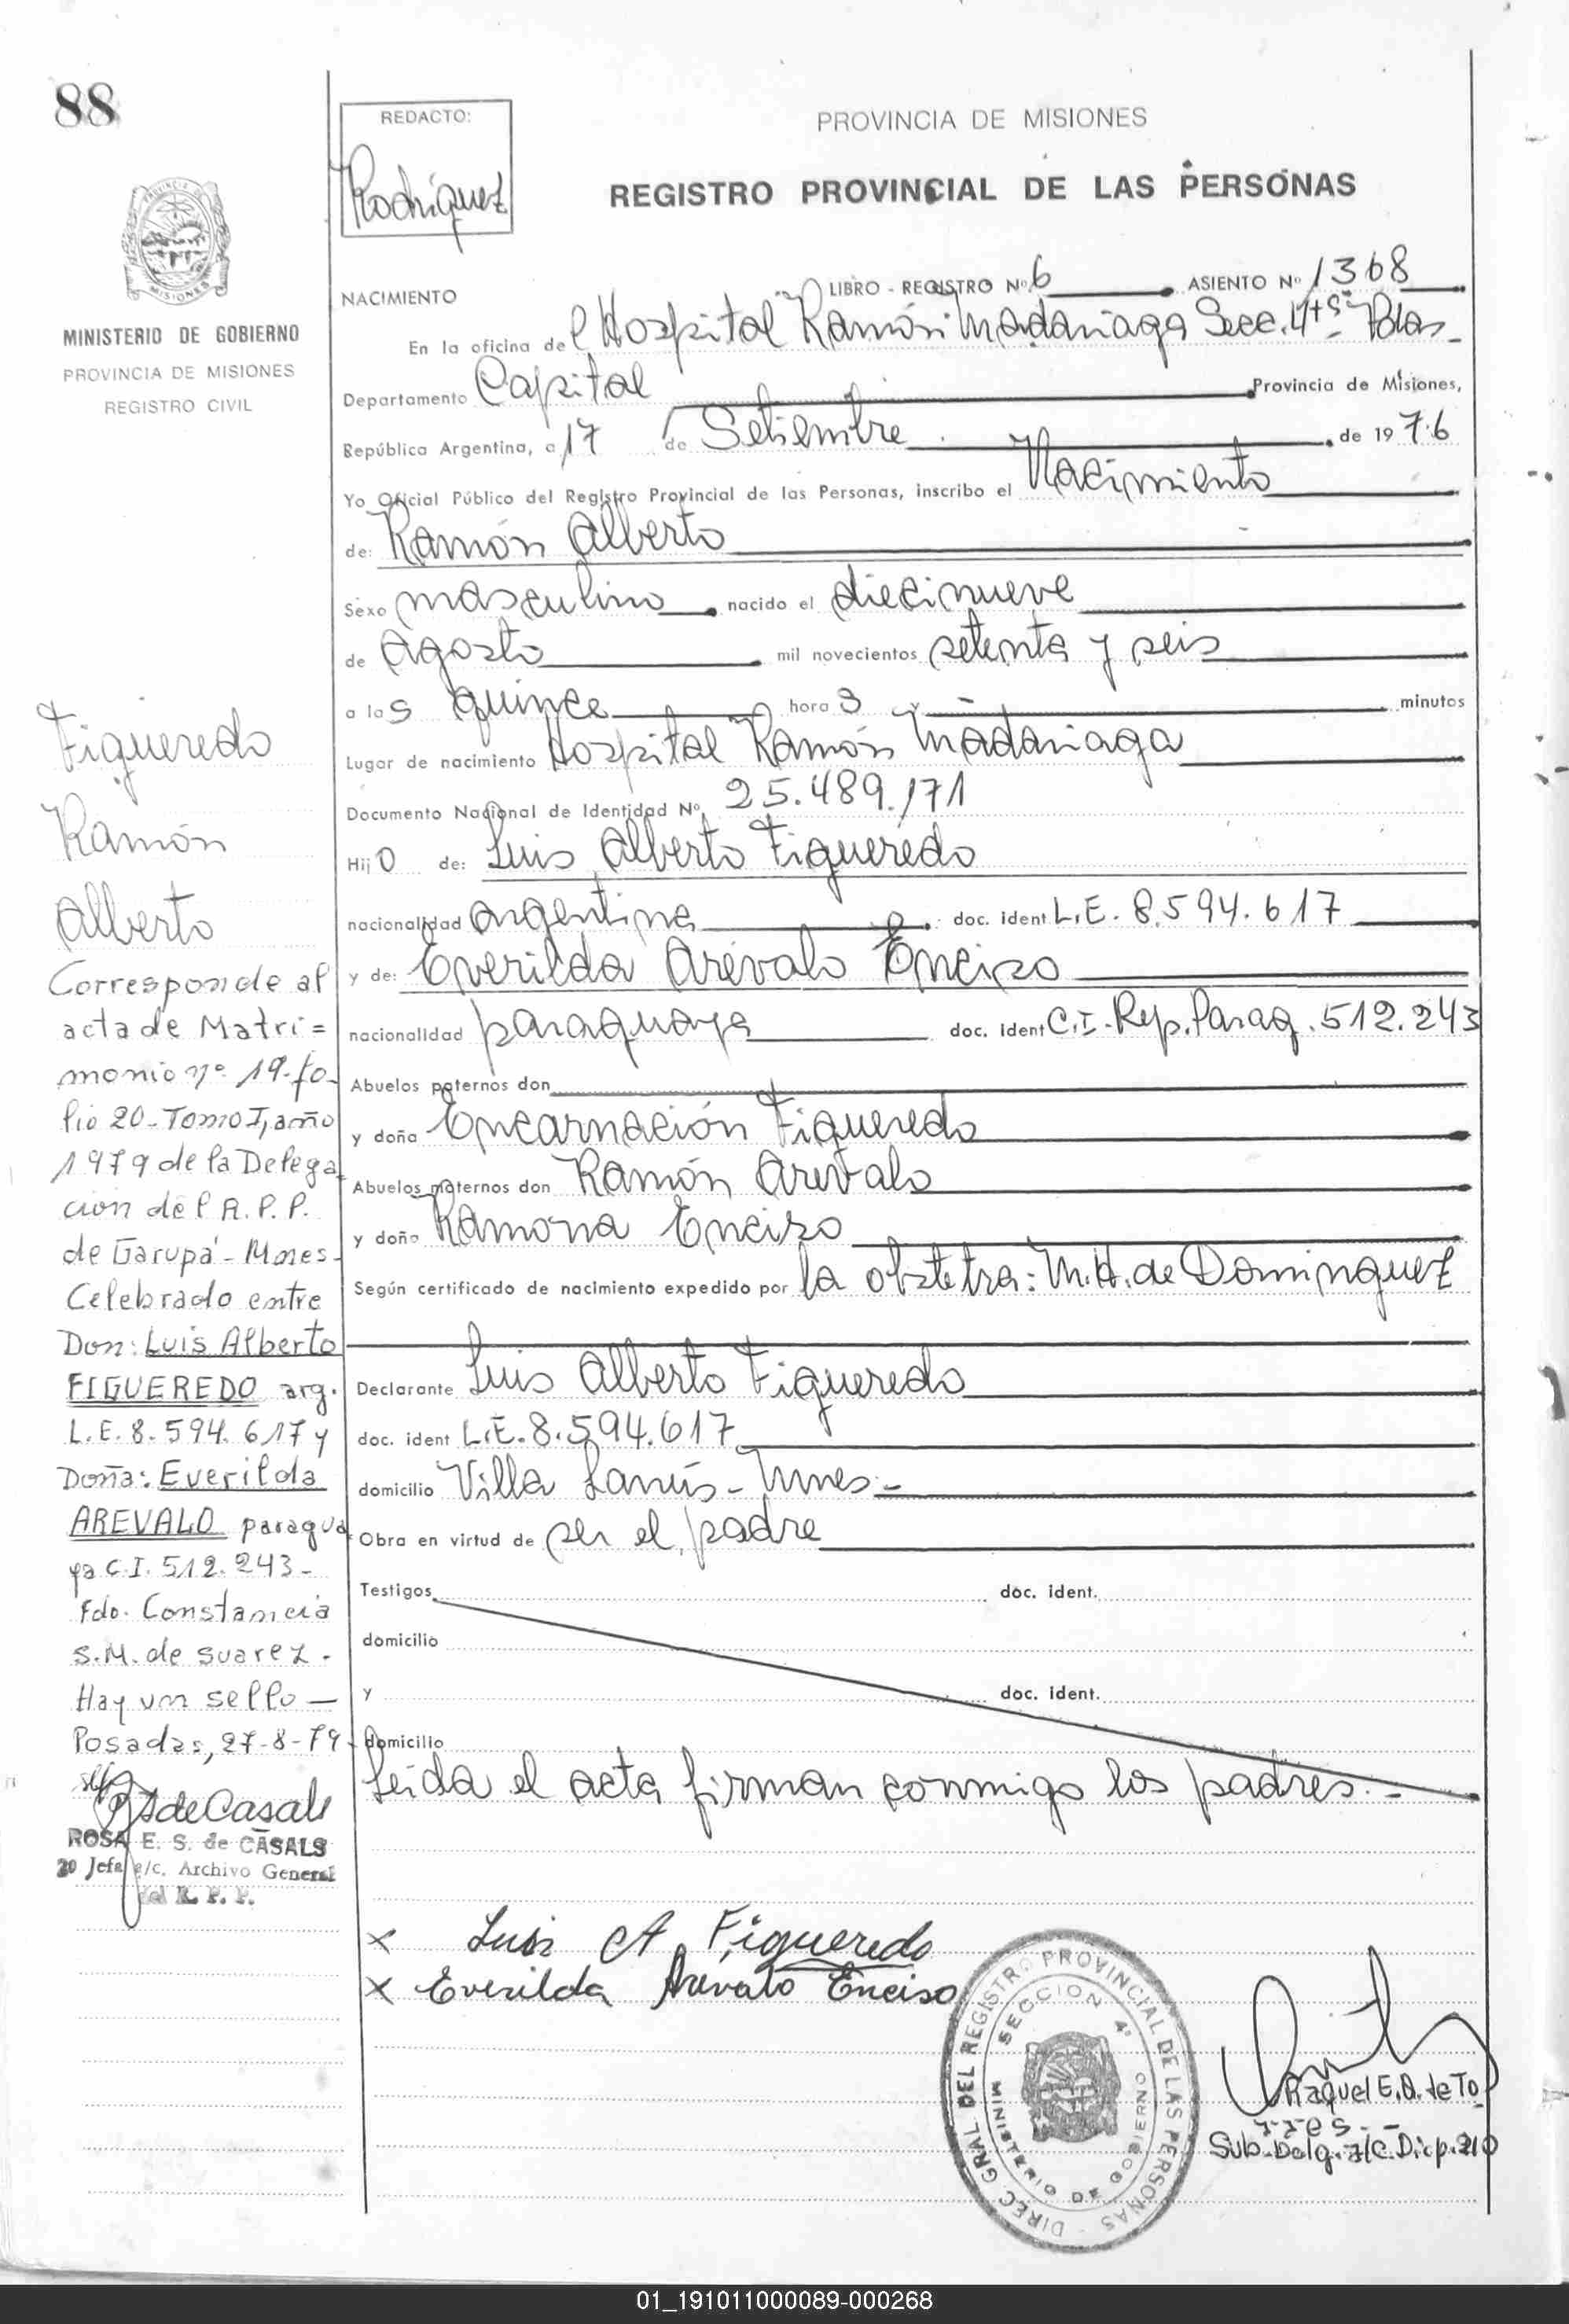 88
REDACTO:
Rodríguez
PROVINCIA DE MISIONES
REGISTRO PROVINCIAL DE LAS PERSONAS
MISIONES
MINISTERIO DE GOBIERNO
PROVINCIA DE MISIONES
REGISTRO CIVIL
NACIMIENTO LIBRO - REGISTRO Nº 6 ASIENTO Nº 1368
En la oficina del Hospital Ramón Madariaga Secc. 4ta Pdas
Departamento Capital Provincia de Misiones,
República Argentina, a 17 de Setiembre de 1976
Yo Oficial Público del Registro Provincial de las Personas, inscribo el Nacimiento
de: Ramón Alberto
Sexo masculino nacido el diecinueve
de Agosto mil novecientos setenta y seis
a las quince horas y — minutos
Lugar de nacimiento Hospital Ramón Madariaga
Documento Nacional de Identidad Nº 25.489.171
Hijo de: Luis Alberto Figueredo
nacionalidad argentina doc. ident L.E. 8.594.617
y de: Everilda Arévalo Enciso
nacionalidad paraguaya doc. ident C.I. Rep. Parag. 512.243
Abuelos paternos don
y doña Encarnación Figueredo
Abuelos maternos don Ramón Arévalo
y doña Ramona Enciso
Según certificado de nacimiento expedido por la obstetra: M.H. de Dominguez
Declarante Luis Alberto Figueredo
doc. ident L.E. 8.594.617
domicilio Villa Lanús - Mnes -
Obra en virtud de ser el padre
Testigos doc. ident.
domicilio
y doc. ident.
domicilio
Leída el acta firman conmigo los padres.-
x Luis A. Figueredo
x Everilda Arevalo Enciso
Figueredo
Ramón
Alberto
Corresponde al
acta de Matri=
monio nº 19-fo-
lio 20-Tomo I, año
1979 de la Delega
ción del R.P.P.
de Garupá - Mnes-
Celebrado entre
Don: Luis Alberto
FIGUEREDO arg.
L.E. 8.594.617 y
Doña: Everilda
AREVALO paragua
ya C.I. 512.243-
Fdo. Constancia
S.M. de Suarez.
Hay un sello—
Posadas, 27-8-79
ROSA E. S. de CASALS
20 Jefa a/c. Archivo General
del R. P. P.
DIREC. GRAL. DEL REGISTRO PROVINCIAL DE LAS PERSONAS
SECCION 4ª
MINISTERIO DE GOBIERNO
Raquel E. Q. de To
rres.-
Sub-Delg. a/c. Disp. 210
01_191011000089-000268